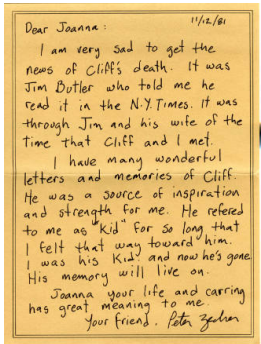 11/12/81
Dear Joanna:
I am very sad to get the
news of Cliff's death. It was
Jim Butler who told me he
read it in the N.Y. Times. It was
through Jim and his wife of the
time that Cliff and I met.
I have many wonderful
letters and memories of Cliff.
He was a source of inspiration
and strength for me. He refered
to me as "kid" for so long that
I felt that way toward him.
I was his Kid and now he's gone.
His memory will live on.
Joanna your life and carring
has great meaning to me.
Your friend, Peter